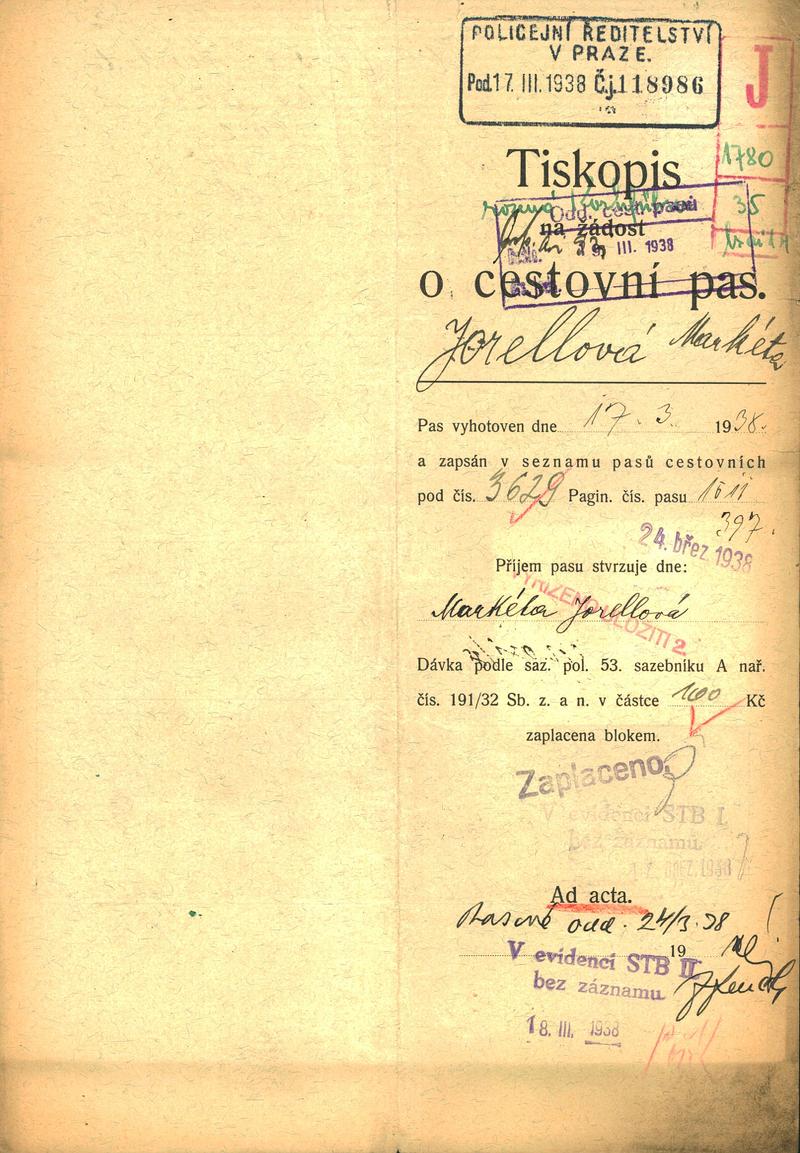 POLICEJNÍ ŘEDITELSTVÍ
V PRAZE.
Pod. 17. III. 1938 Č.j. 118986
J
1780
35
Tiskopis
Odd. cest. pasů
na žádost
III. 1938
o cestovní pas.
Jorellová Markéta
Pas vyhotoven dne 17. 3. 1938.
a zapsán v seznamu pasů cestovních
pod čís. 3629 Pagin. čís. pasu 1511
397.
24. břez 1938
Příjem pasu stvrzuje dne:
Markéta Jorellová
Dávka podle saz. pol. 53. sazebníku A nař.
čís. 191/32 Sb. z. a n. v částce 100 Kč
zaplacena blokem.
Zaplaceno
V evidenci STB I.
bez záznamu.
Ad acta.
odd. 24/3. 38
19
V evidenci STB II
bez záznamu.
18. III. 1938